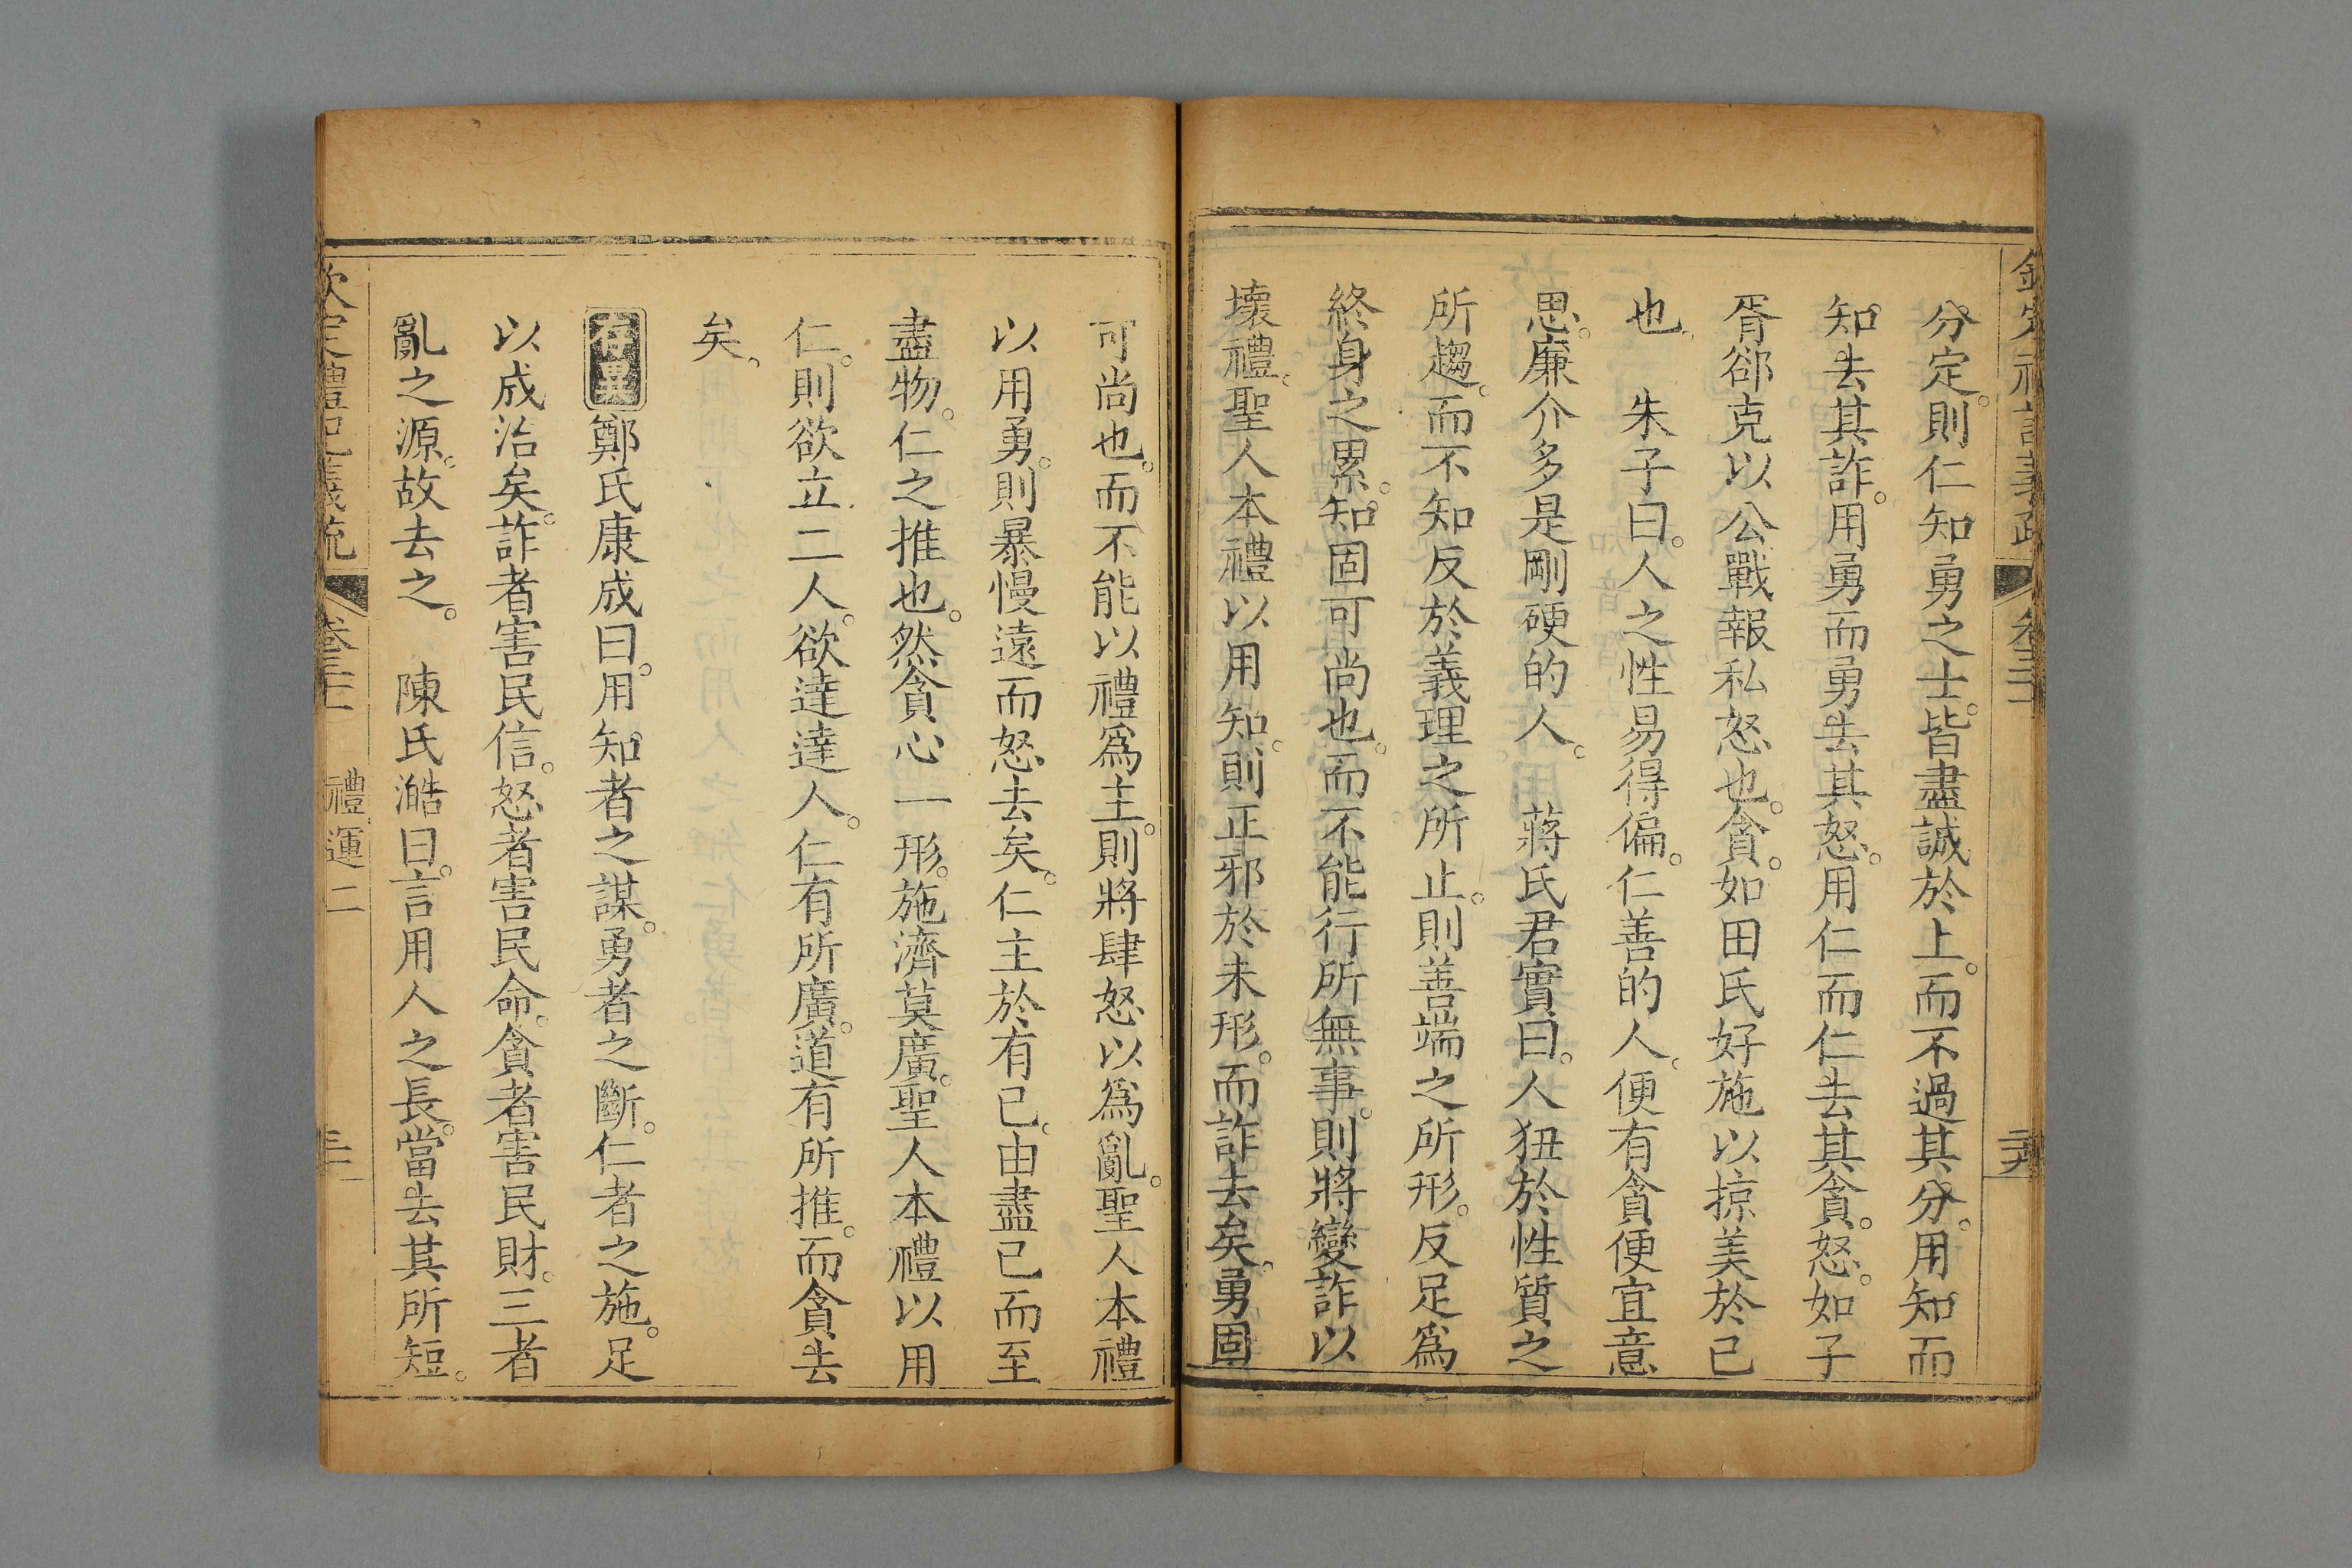 分定。則仁知勇之士。皆盡誠於上。而不過其分。用知而
知去其詐。用勇而勇去其怒。用仁而仁去其貪。怒。如子
胥郤克以公戰報私怒也。貪。如田氏好施以掠美於己
也。　朱子曰。人之性易得偏。仁善的人。便有貪便宜意
思。廉介多是剛硬的人。　蔣氏君實曰。人狃於性質之
所趨。而不知反於義理之所止。則善端之所形。反足爲
終身之累。知固可尚也。而不能行所無事。則將變詐以
壞禮。聖人本禮以用知。則正邪於未形。而詐去矣。勇固
可尚也。而不能以禮爲主。則將肆怒以爲亂。聖人本禮
以用勇。則暴慢遠而怒去矣。仁主於有己。由盡己而至
盡物。仁之推也。然貪心一形。施濟莫廣。聖人本禮以用
仁。則欲立二人。欲達達人。仁有所廣。道有所推。而貪去
矣。
存異鄭氏康成曰。用知者之謀。勇者之斷。仁者之施。足
以成治矣。詐者害民信。怒者害民命。貪者害民財。三者
亂之源。故去之。　陳氏澔曰。言用人之長。當去其所短。
欽定禮記義疏　卷三十　禮運二